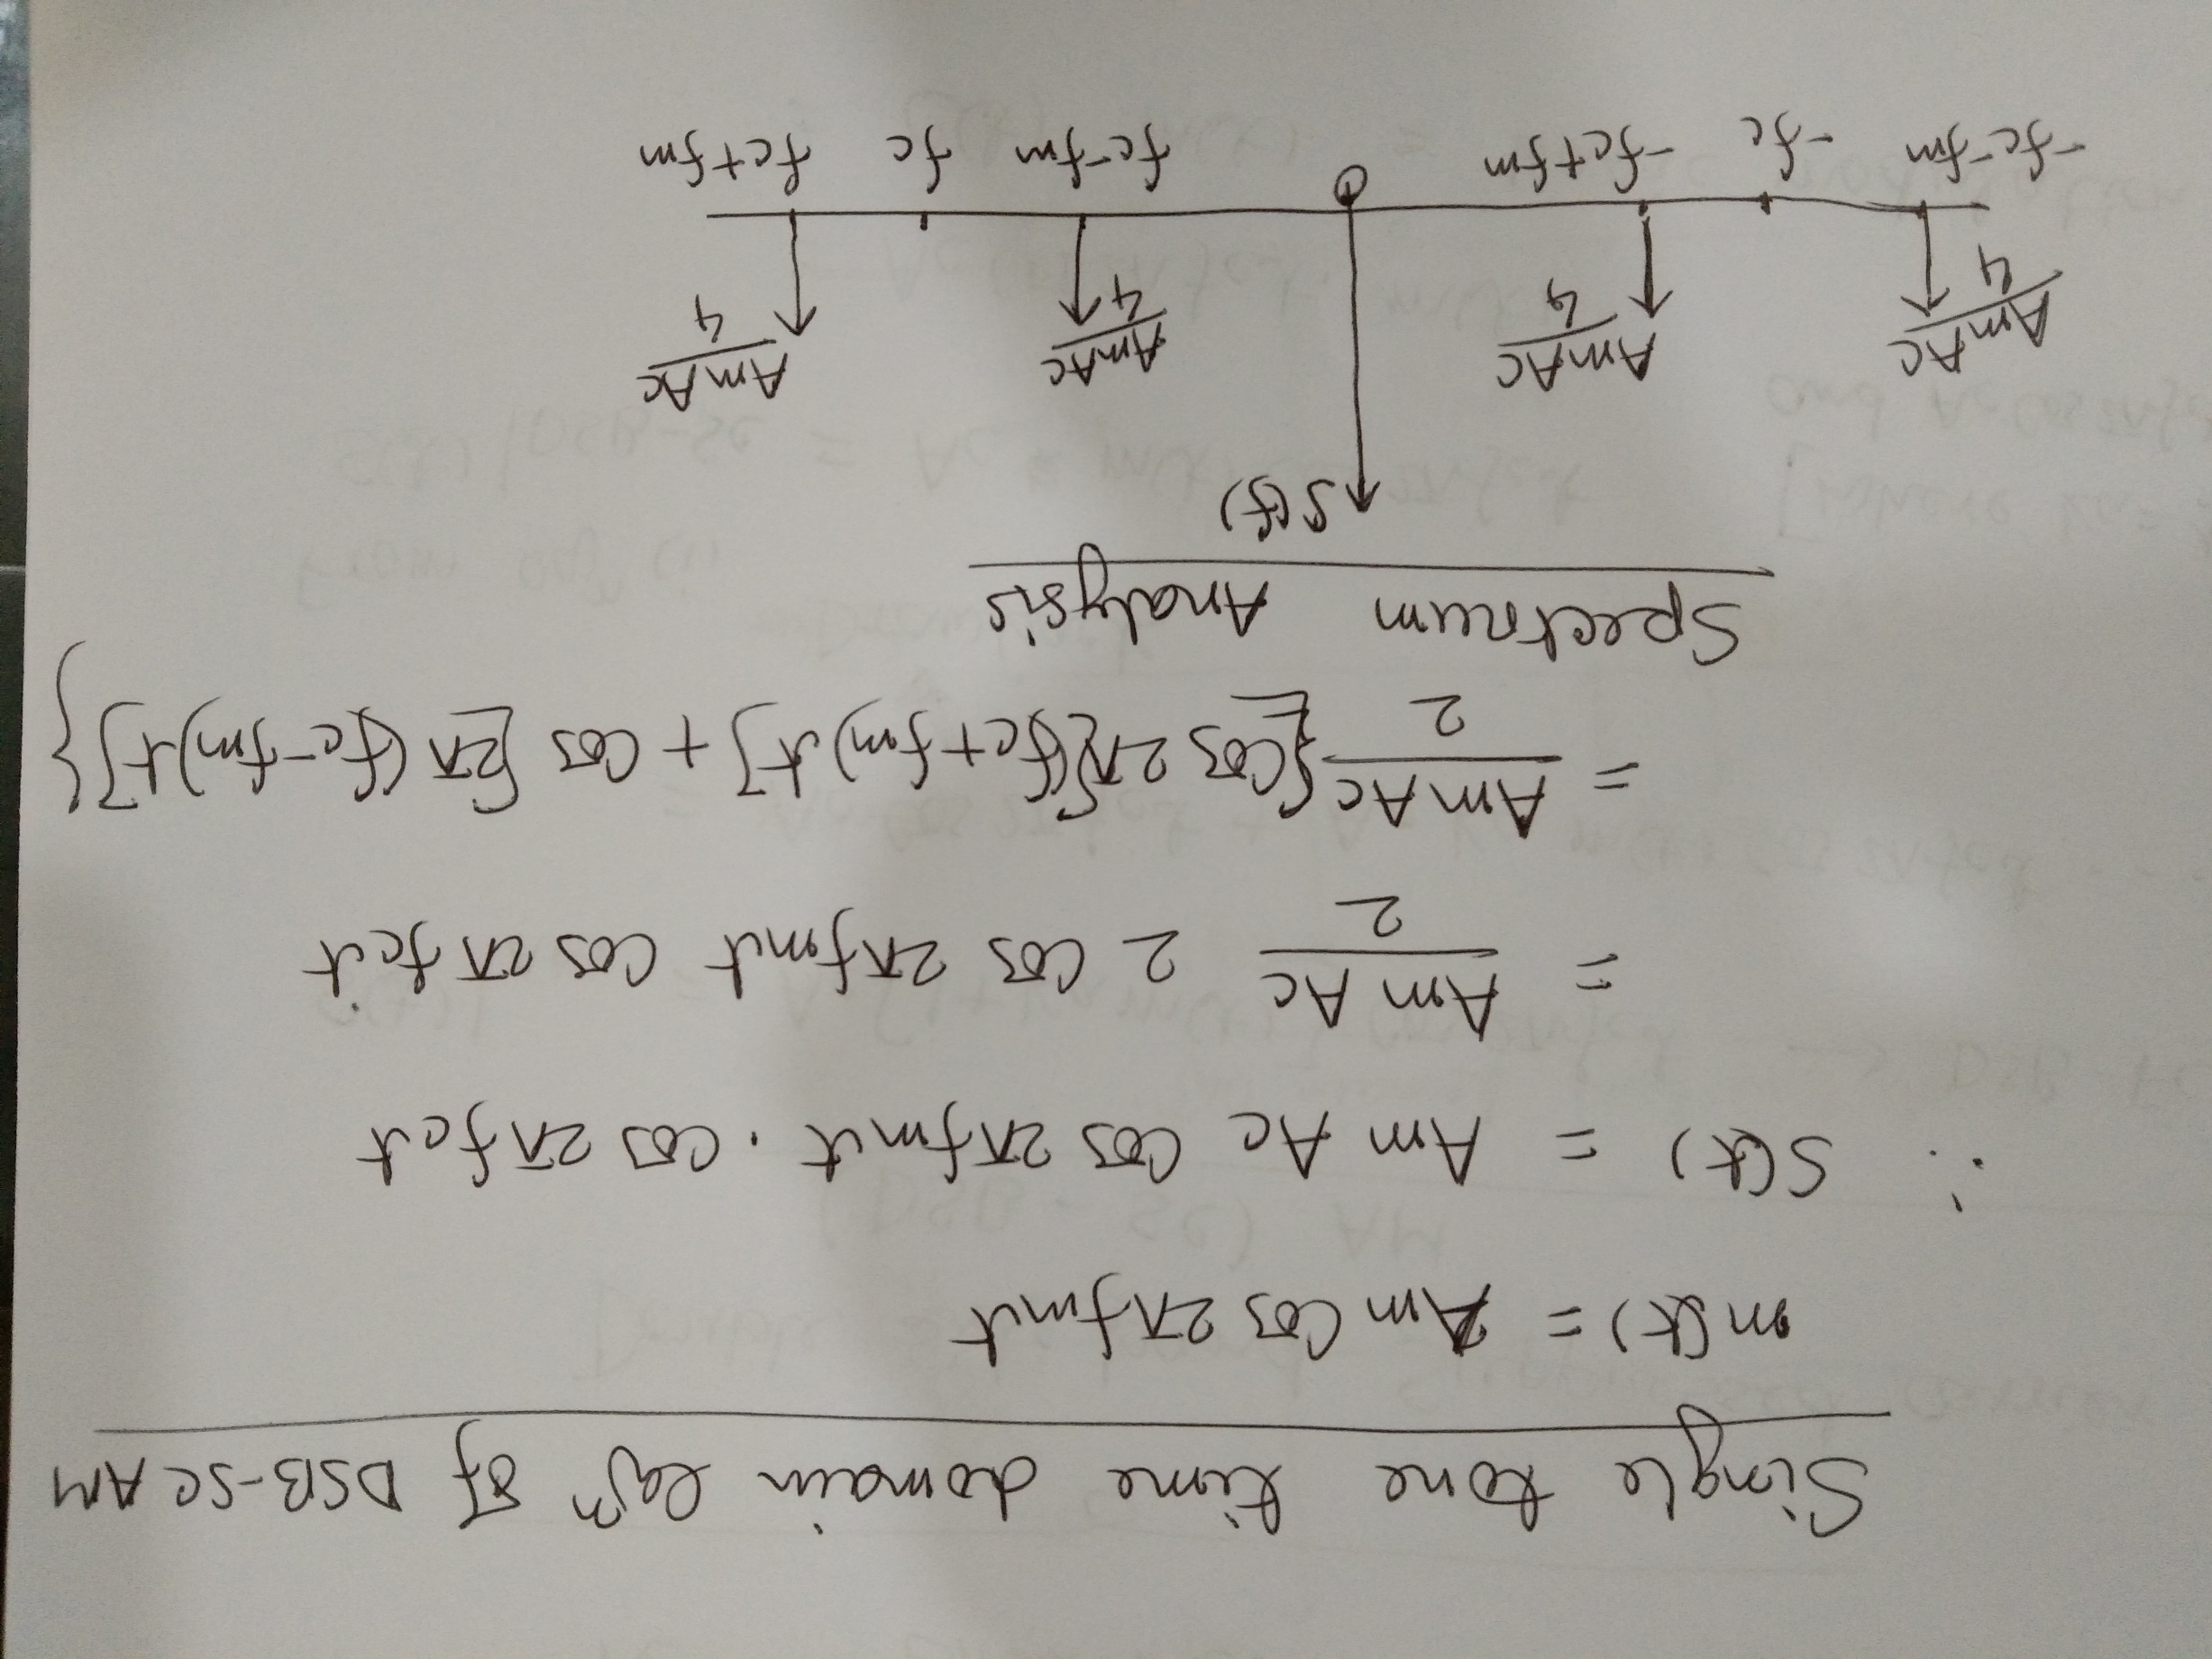 Single tone time domain eqn of DSB-SC AM
m(t) = Am Cos 2πfmt
∴ S(t) = Am Ac Cos 2πfmt · Cos 2πfct
= AmAc/2 2 Cos 2πfmt Cos 2πfct
= AmAc/2 {Cos 2π[(fc+fm)t] + Cos [2π(fc-fm)t]}
Spectrum Analysis
S(f)
AmAc/4 AmAc/4 AmAc/4 AmAc/4
-fc-fm -fc -fc+fm 0 fc-fm fc fc+fm